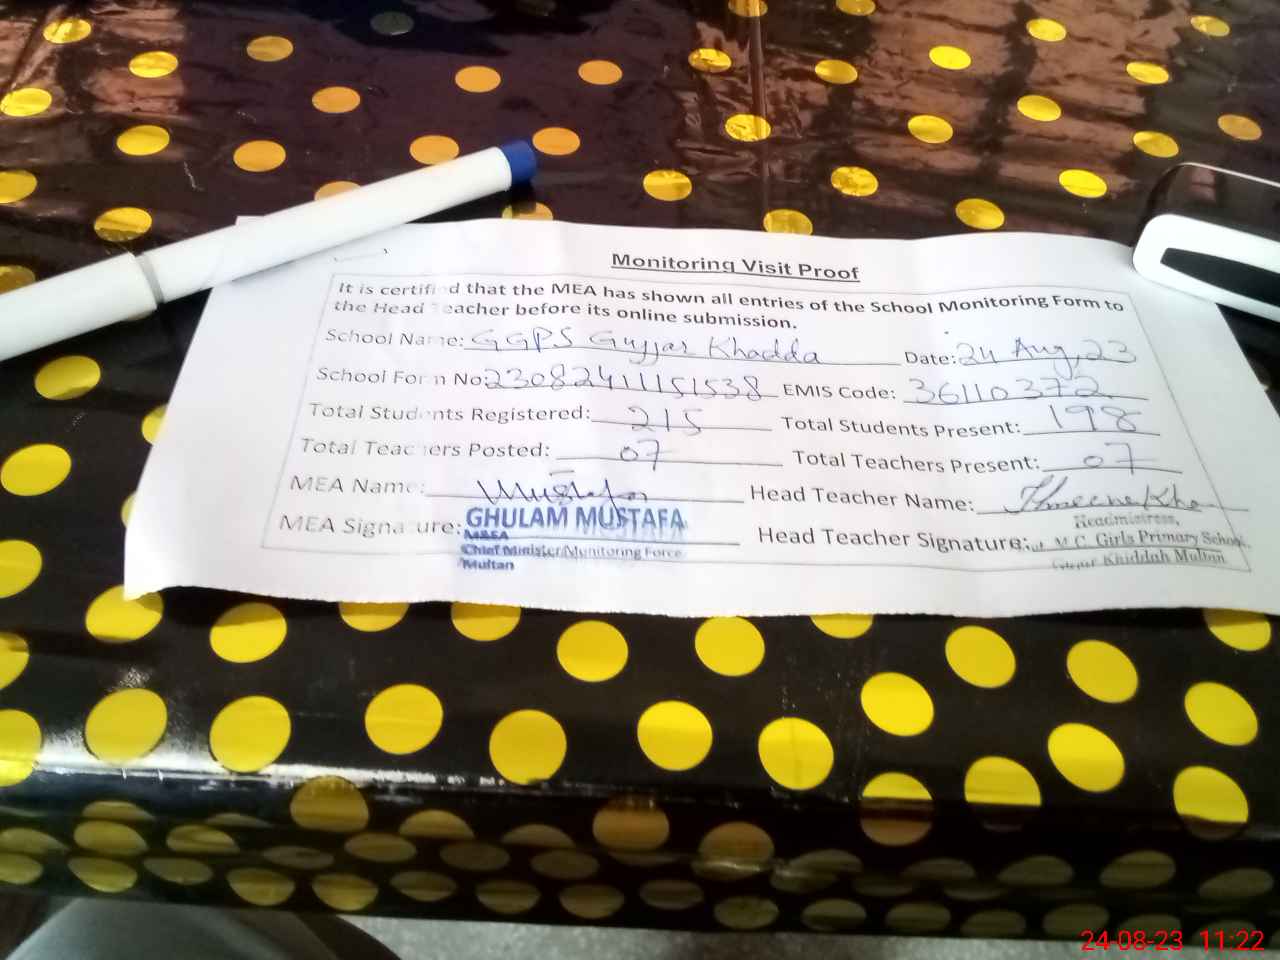 Monitoring Visit Proof
It is certified that the MEA has shown all entries of the School Monitoring Form to
the Head Teacher before its online submission.
School Name: GGPS Gujjar Khadda Date: 24 Aug, 23
School Form No: 23082411151538 EMIS Code: 36110372
Total Students Registered: 215 Total Students Present: 198
Total Teachers Posted: 07 Total Teachers Present: 07
MEA Name: Mustafa Head Teacher Name:
MEA Signature: Head Teacher Signature:
GHULAM MUSTAFA
M&EA
Chief Minister Monitoring Force
Multan
Headmistress,
M.C. Girls Primary School
Khiddah Multan
24-08-23 11:22